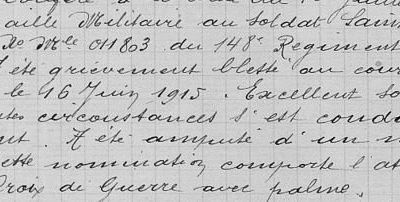 aille Militaire au soldat
No Mle 011803 du 148e Régiment
A été grièvement blessé au cour
le 16 Juin 1915. Excellent so
tes circonstances s'est condu
nt. A été amputé d'un m
ette nomination comporte l'at
Croix de Guerre avec palme.